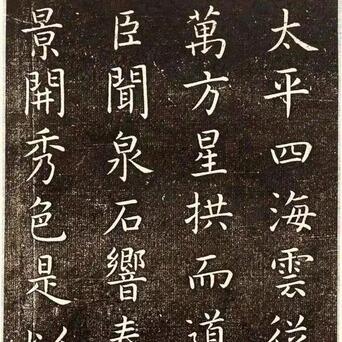 太平四海雲從
萬方星拱而道
臣聞泉石響
景開秀色是